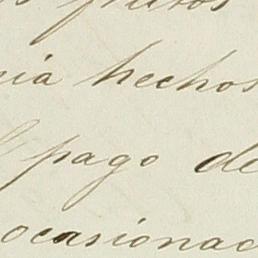 frutos
nia hechos
pago de
ocasionad